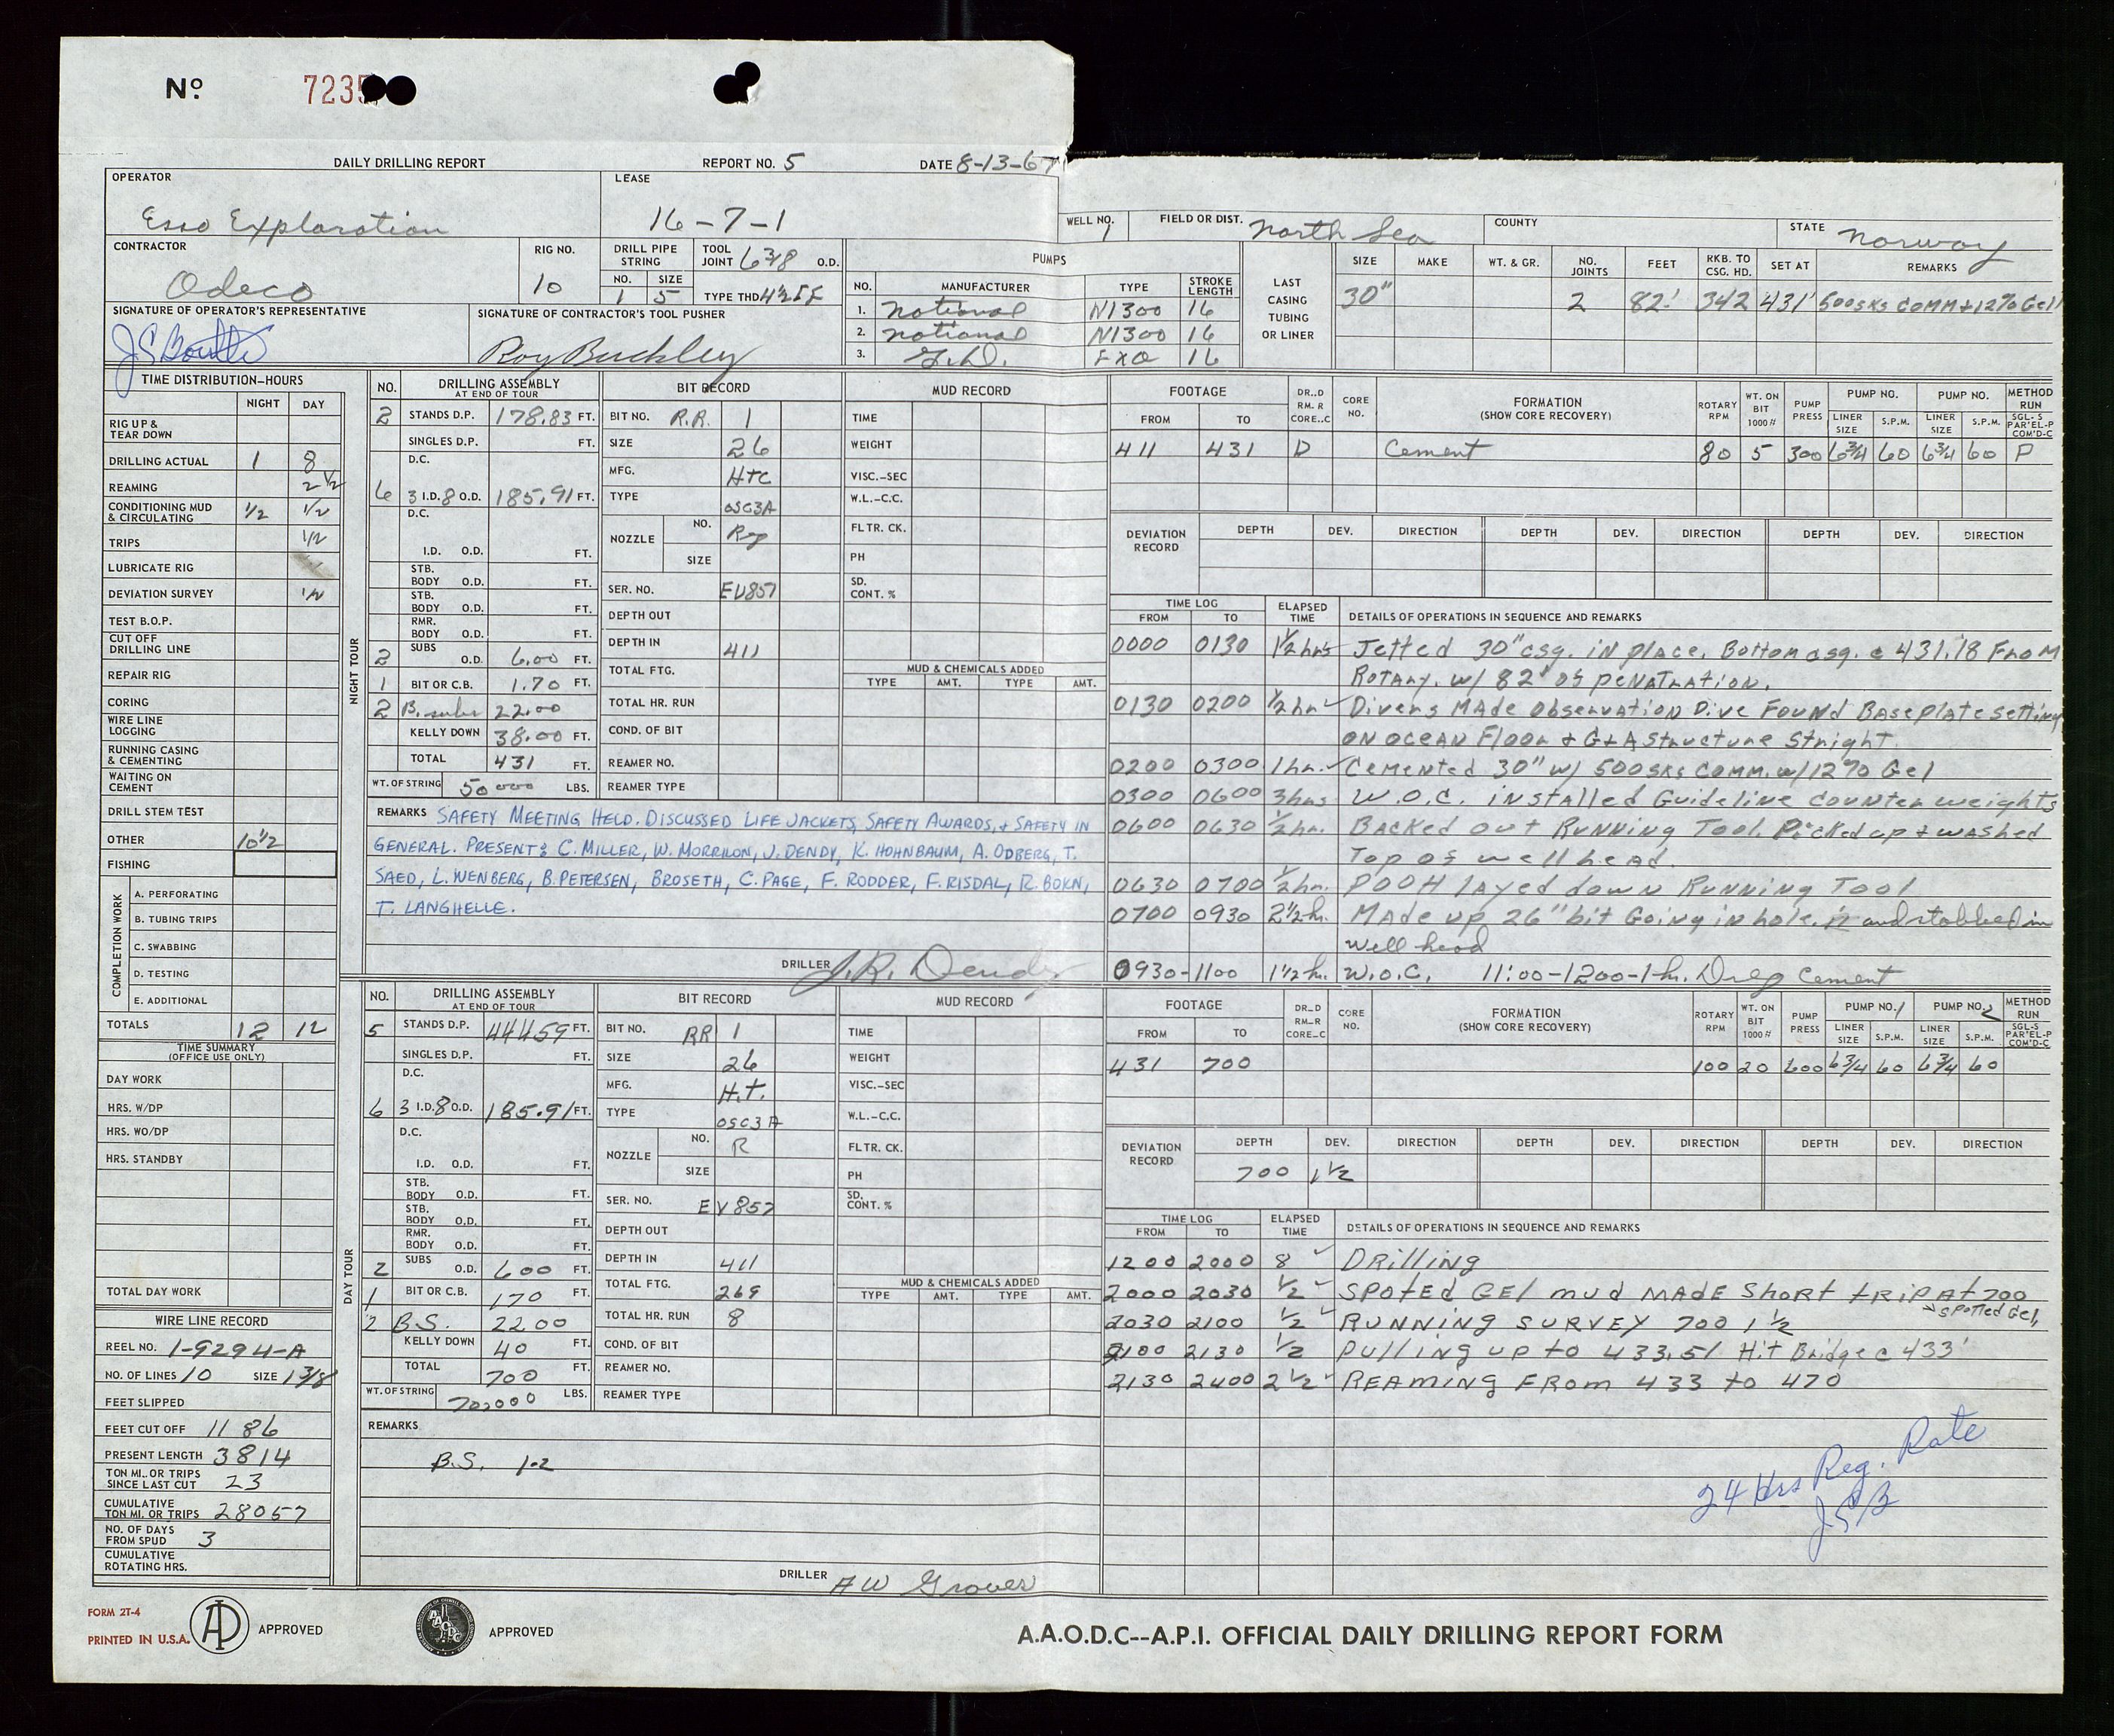 Nº 7235
DAILY DRILLING REPORT REPORT NO. 5 DATE 8-13-67
OPERATOR Esso Exploration LEASE 16-7-1 WELL NO. 1 FIELD OR DIST. North Sea COUNTY STATE Norway
CONTRACTOR Odeco RIG NO. 10
DRILL PIPE STRING NO. 1 SIZE 5 TOOL JOINT 6 3/8 O.D. TYPE THD 4½ IF
PUMPS
NO. MANUFACTURER TYPE STROKE LENGTH
1. National N1300 16
2. National N1300 16
3. G.D. FXO 16
LAST CASING TUBING OR LINER
SIZE MAKE WT. & GR. NO. JOINTS FEET RKB. TO CSG. HD. SET AT REMARKS
30" 2 82' 342 431' 500 SKS COMM + 12% Gel
SIGNATURE OF OPERATOR'S REPRESENTATIVE
SIGNATURE OF CONTRACTOR'S TOOL PUSHER Roy Buckley
TIME DISTRIBUTION–HOURS
NIGHT DAY
RIG UP & TEAR DOWN
DRILLING ACTUAL 1 8
REAMING 2 1/2
CONDITIONING MUD & CIRCULATING 1/2 1/2
TRIPS 1/2
LUBRICATE RIG
DEVIATION SURVEY 1/2
TEST B.O.P.
CUT OFF DRILLING LINE
REPAIR RIG
CORING
WIRE LINE LOGGING
RUNNING CASING & CEMENTING
WAITING ON CEMENT
DRILL STEM TEST
OTHER 10½
FISHING
COMPLETION WORK
A. PERFORATING
B. TUBING TRIPS
C. SWABBING
D. TESTING
E. ADDITIONAL
TOTALS 12 12
TIME SUMMARY
(OFFICE USE ONLY)
DAY WORK
HRS. W/DP
HRS. WO/DP
HRS. STANDBY
TOTAL DAY WORK
WIRE LINE RECORD
REEL NO. 1-9294-A
NO. OF LINES 10 SIZE 1 3/8
FEET SLIPPED
FEET CUT OFF 1186
PRESENT LENGTH 3814
TON MI. OR TRIPS SINCE LAST CUT 23
CUMULATIVE TON MI. OR TRIPS 28057
NO. OF DAYS FROM SPUD 3
CUMULATIVE ROTATING HRS.
NIGHT TOUR
NO. DRILLING ASSEMBLY AT END OF TOUR
2 STANDS D.P. 178.83 FT.
SINGLES D.P. FT.
D.C.
6 3 I.D. 8 O.D. 185.91 FT.
D.C.
I.D. O.D. FT.
STB. BODY O.D. FT.
STB. BODY O.D. FT.
RMR. BODY O.D. FT.
2 SUBS O.D. 6.00 FT.
1 BIT OR C.B. 1.70 FT.
2 B. subs 22.00
KELLY DOWN 38.00 FT.
TOTAL 431 FT.
WT. OF STRING 50000 LBS.
BIT RECORD
BIT NO. R.R. 1
SIZE 26
MFG. HTC
TYPE OSC3A
NOZZLE NO. Reg
SIZE
SER. NO. EV857
DEPTH OUT
DEPTH IN 411
TOTAL FTG.
TOTAL HR. RUN
COND. OF BIT
REAMER NO.
REAMER TYPE
MUD RECORD
TIME
WEIGHT
VISC.–SEC
W.L.–C.C.
FLTR. CK.
PH
SD. CONT. %
MUD & CHEMICALS ADDED
TYPE AMT. TYPE AMT.
REMARKS SAFETY MEETING HELD. DISCUSSED LIFE JACKETS, SAFETY AWARDS, + SAFETY IN
GENERAL. PRESENT: C. MILLER, W. MORRILON, J. DENDY, K. HOHNBAUM, A. ODBERG, T.
SAED, L. WENBERG, B. PETERSEN, BROSETH, C. PAGE, F. RODDER, F. RISDAL, R. BOKN,
T. LANGHELLE.
DRILLER J.R. Dendy
FOOTAGE FROM TO DR..D RM.R CORE..C CORE NO. FORMATION (SHOW CORE RECOVERY) ROTARY RPM WT. ON BIT 1000# PUMP PRESS PUMP NO. LINER SIZE S.P.M. PUMP NO. LINER SIZE S.P.M. METHOD RUN SGL-S PAR'EL-P COM'D-C
411 431 D Cement 80 5 300 6 3/4 60 6 3/4 60 P
DEVIATION RECORD DEPTH DEV. DIRECTION DEPTH DEV. DIRECTION DEPTH DEV. DIRECTION
TIME LOG FROM TO ELAPSED TIME DETAILS OF OPERATIONS IN SEQUENCE AND REMARKS
0000 0130 1½ hrs Jetted 30" csg. in place. Bottom csg. @ 431.18 From
Rotary. w/ 82' of penatration.
0130 0200 ½ hr Divers Made observation Dive Found Baseplate setting
on ocean Floor + G+A structure stright
0200 0300 1 hr. Cemented 30" w/ 500 sks Comm. w/ 12% Gel
0300 0600 3 hrs W.O.C. installed Guideline counter weights
0600 0630 ½ hr. Backed out Running Tool. Picked up + washed
Top of well head.
0630 0700 ½ hr. POOH layed down Running Tool
0700 0930 2½ h. Made up 26" bit Going in hole. and stabbed in
well head
0930-1100 1½ h. W.O.C. 11:00-1200-1-h. Drlg Cement
DAY TOUR
NO. DRILLING ASSEMBLY AT END OF TOUR
5 STANDS D.P. 444.59 FT.
SINGLES D.P. FT.
D.C.
6 3 I.D. 8 O.D. 185.91 FT.
D.C.
I.D. O.D. FT.
STB. BODY O.D. FT.
STB. BODY O.D. FT.
RMR. BODY O.D. FT.
2 SUBS O.D. 600 FT.
1 BIT OR C.B. 170 FT.
2 B.S. 2200
KELLY DOWN 40 FT.
TOTAL 700 FT.
WT. OF STRING 70,000 LBS.
BIT RECORD
BIT NO. RR 1
SIZE 26
MFG. H.T.
TYPE OSC3A
NOZZLE NO. R
SIZE
SER. NO. EV857
DEPTH OUT
DEPTH IN 411
TOTAL FTG. 269
TOTAL HR. RUN 8
COND. OF BIT
REAMER NO.
REAMER TYPE
MUD RECORD
TIME
WEIGHT
VISC.–SEC
W.L.–C.C.
FLTR. CK.
PH
SD. CONT. %
MUD & CHEMICALS ADDED
TYPE AMT. TYPE AMT.
REMARKS
B.S. 1-2
DRILLER AW Groves
FOOTAGE FROM TO DR..D RM–R CORE–C CORE NO. FORMATION (SHOW CORE RECOVERY) ROTARY RPM WT. ON BIT 1000# PUMP PRESS PUMP NO. 1 LINER SIZE S.P.M. PUMP NO. 2 LINER SIZE S.P.M. METHOD RUN SGL-S PAR'EL-P COM'D-C
431 700 100 20 600 6 3/4 60 6 3/4 60
DEVIATION RECORD DEPTH DEV. DIRECTION DEPTH DEV. DIRECTION DEPTH DEV. DIRECTION
700 1½
TIME LOG FROM TO ELAPSED TIME DETAILS OF OPERATIONS IN SEQUENCE AND REMARKS
1200 2000 8 Drilling
2000 2030 ½ SPOTED GEl mud MADE Short triP At 700
spotted Gel,
2030 2100 ½ RUNNING SURVEY 700 1½
2100 2130 ½ Pulling up to 433.51 Hit Bridge @ 433'
2130 2400 2½ REAMING From 433 to 470
24 Hrs Reg. Rate
JSB
FORM 2T-4
PRINTED IN U.S.A.
API APPROVED
AAODC APPROVED
A.A.O.D.C--A.P.I. OFFICIAL DAILY DRILLING REPORT FORM